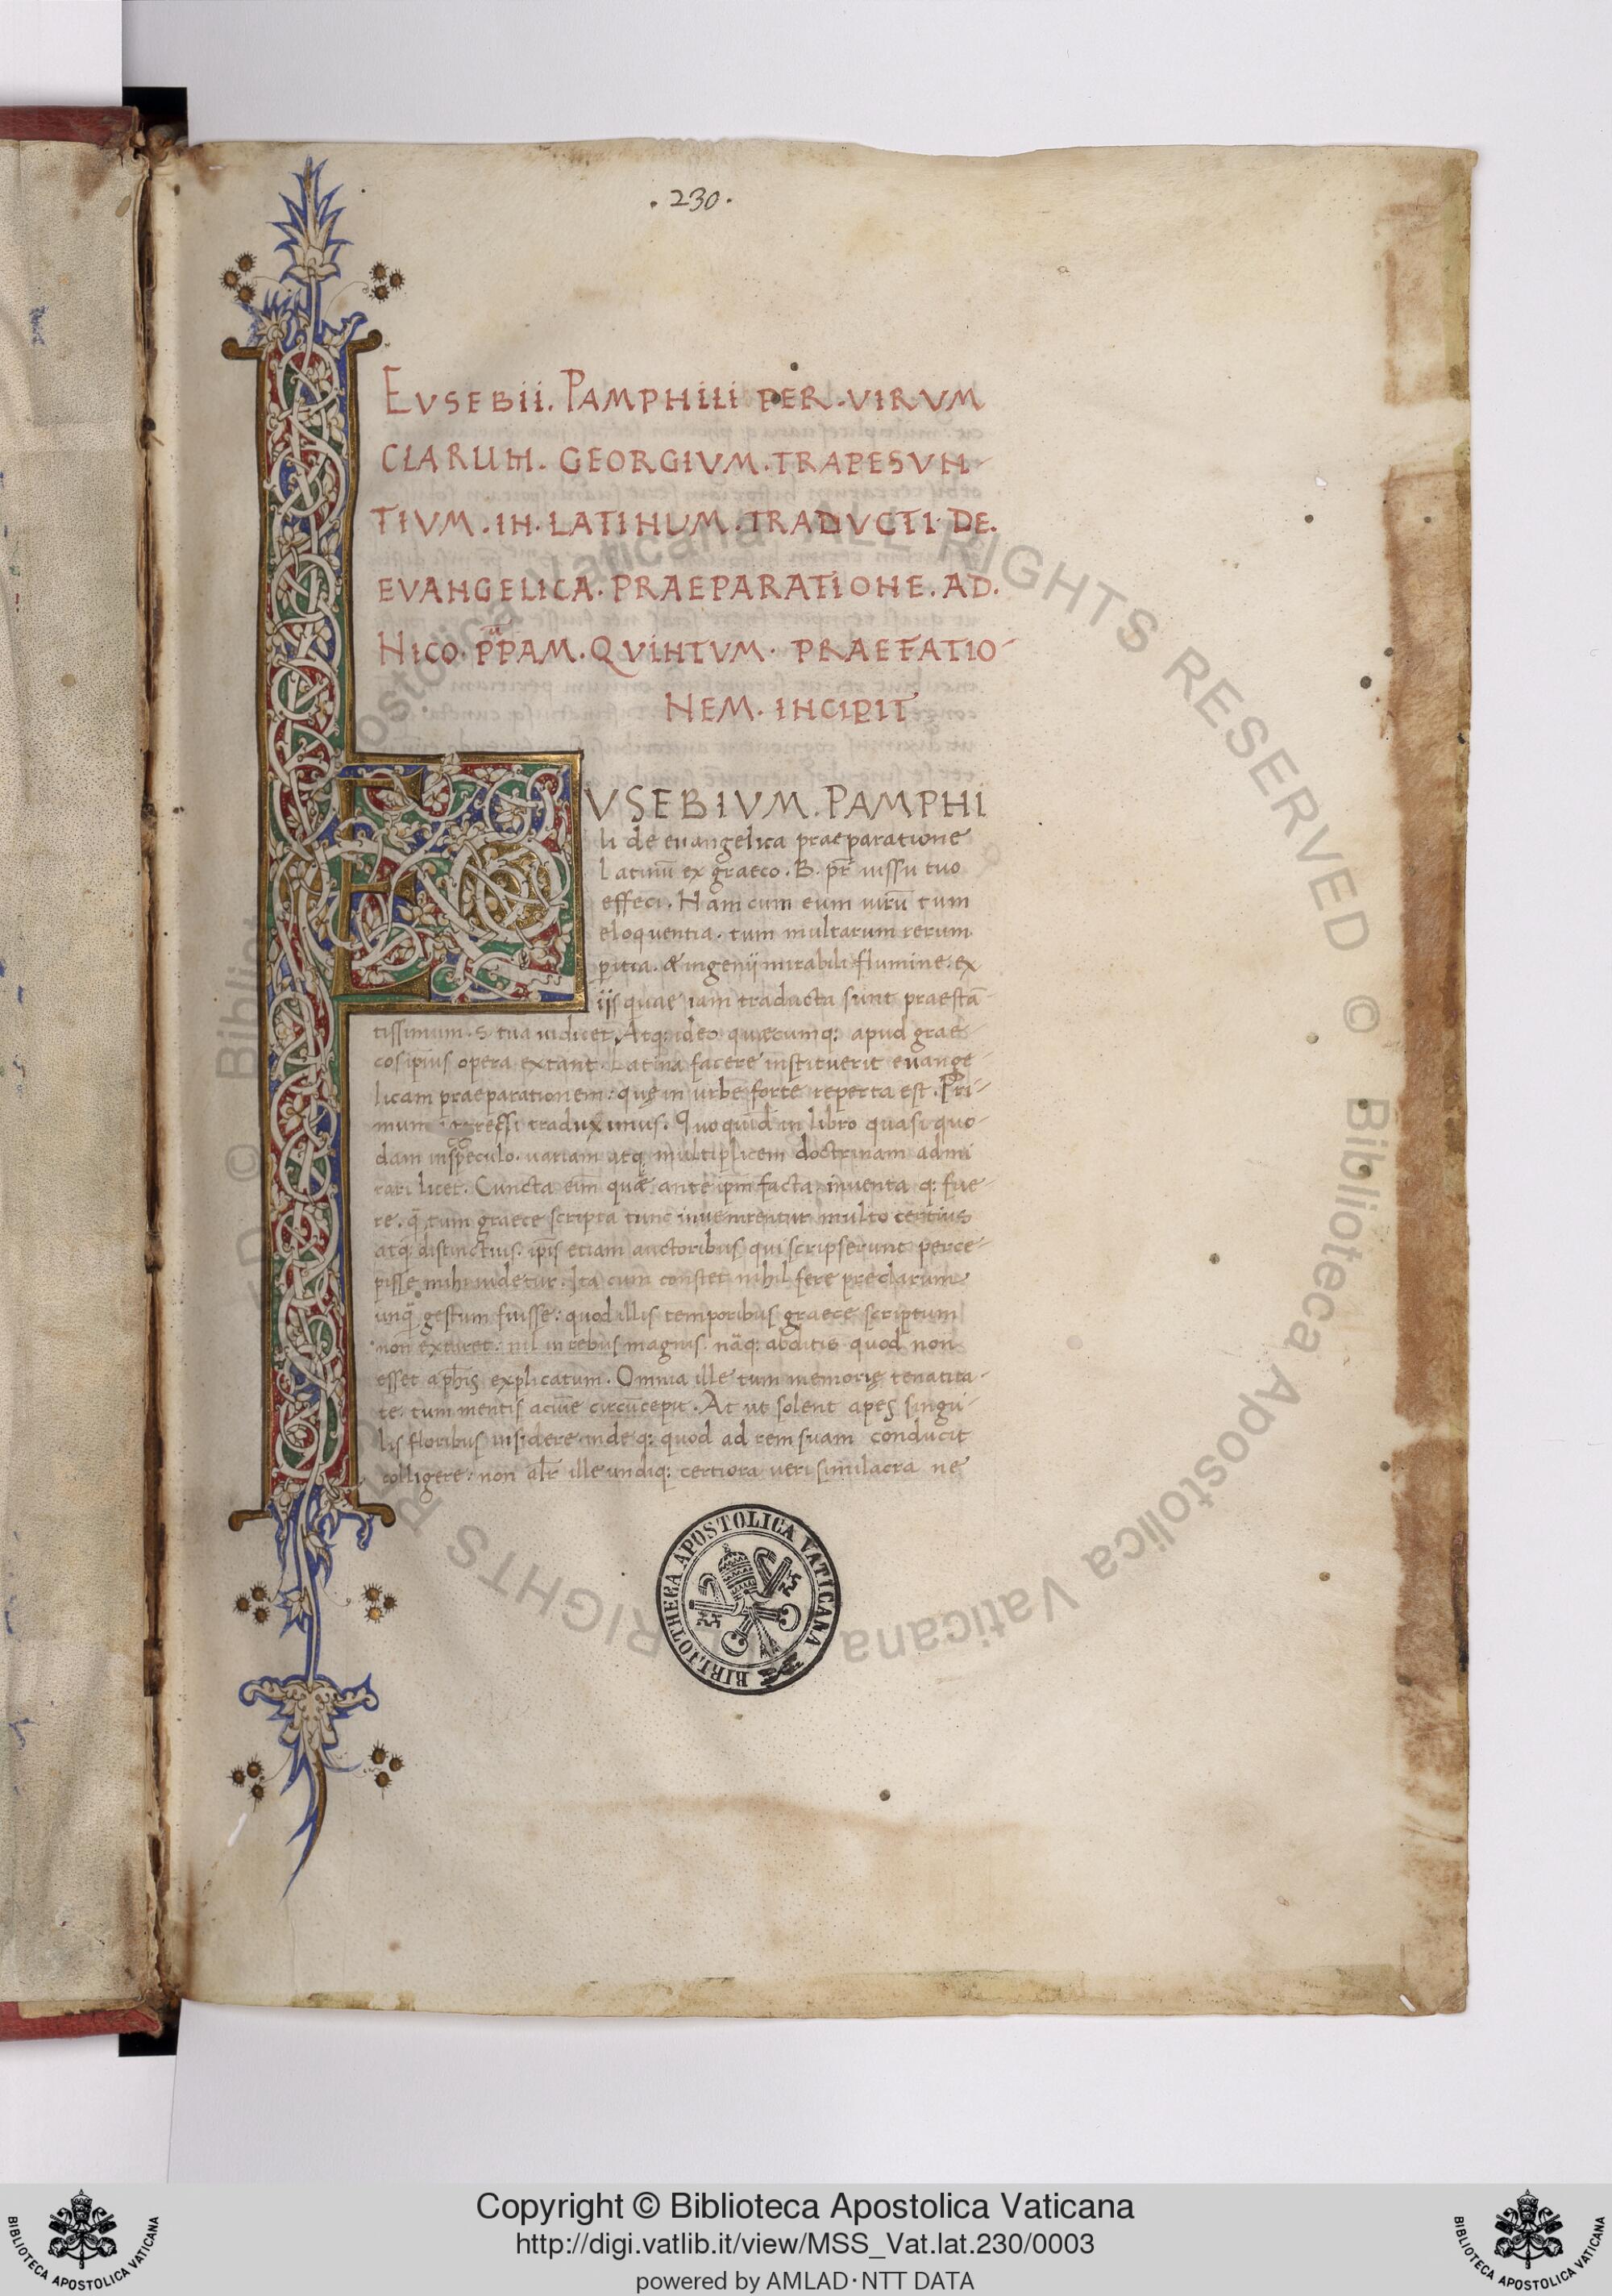 . 230 .
EVSEBII . PAMPHILI PER . VIRVM
CLARUM . GEORGIVM . TRAPESVN-
TIVM . IN . LATINUM . TRADVCTI . DE .
EVANGELICA . PRAEPARATIONE . AD .
NICO . PP̄AM . QVINTVM . PRAEFATIO-
NEM . INCIPIT
EVSEBIVM . PAMPHI
li de euangelica praeparatione
Latinū ex graeco . B. pr̄ iussu tuo
effeci . Nam cum eum uirū tum
eloquentia . tum multarum rerum
pitia . & ingenij mirabili flumine . ex
ijs quae iam traducta sunt praestā-
tissimum . S. tua iudicet . Atq: ideo quęcumq: apud grae-
cos ipius opera extant . Latina facere instituerit euange-
licam praeparationem : quę in urbe forte reperta est . Pri-
mum aggressi traduximus . Quo quid̄ in libro quasi quo-
dam in speculo . uariam atq multiplicem doctrinam admi
rari licet . Cuncta eim̄ quae ante ipm̄ facta inuenta q: fue-
re . q̄ tum graece scripta tunc inuenirentur multo certius
atq: distinctius . ip̄is etiam auctoribus qui scripserunt perce-
pisse mihi uidetur . Ita cum constet nihil fere preclarum
unq̄ gestum fuisse : quod illis temporibus graece scriptum
non extaret : nil in rebus magnis . nāq: abditis quod non
esset a ph̄is explicatum . Omnia ille tum memorię tenacita-
te . tum mentis acum̄e circūcepit . At ut solent apes singu-
lis floribus insidere inde q: quod ad rem suam conducit
colligere : non alr̄ ille undiq: certiora ueri similacra ne
BIBLIOTHECA APOSTOLICA VATICANA
© Biblioteca Apostolica Vaticana ALL RIGHTS RESERVED © Biblioteca Apostolica Vaticana ALL RIGHTS RESERVED
Copyright © Biblioteca Apostolica Vaticana
http://digi.vatlib.it/view/MSS_Vat.lat.230/0003
powered by AMLAD · NTT DATA
BIBLIOTECA APOSTOLICA VATICANA
BIBLIOTECA APOSTOLICA VATICANA